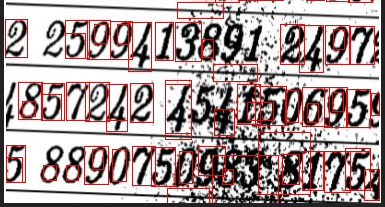 2 2599413691 2497
4857242 4541506959
5 8890750983 8175